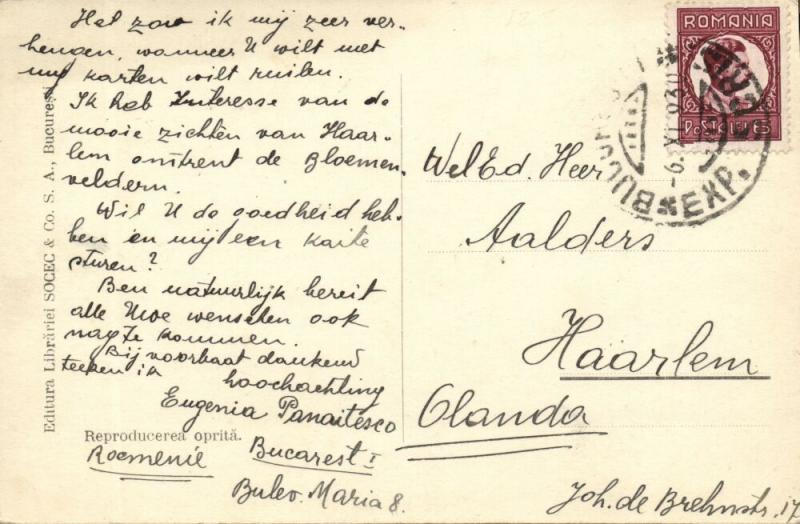 Het zou ik mij zeer ver-
heugen, wanneer U wilt met
my karten wilt ruilen.
Ik heb Interesse van de
mooie zichten van Haar-
lem omtrent de Bloemen-
veldern.
Wil U de goedheid heb-
ben en mij een karte
sturen?
Ben natuurlijk bereit
alle Uwe wenschen ook
nagte kommen.
Bij voorbaat dankend
teeken ik
hoochachting
Eugenia Panaitesco
Bucarest I
Roemenie
Bulev. Maria 8.
Editura Librăriei SOCEC & Co. S. A., București
Reproducerea oprită.
ROMANIA
POSTA LEI 5
*EXP.*
-6. XI. 930
WelEd. Heer
Aalders
Haarlem
Olanda
Joh. de Brehnstr. 17